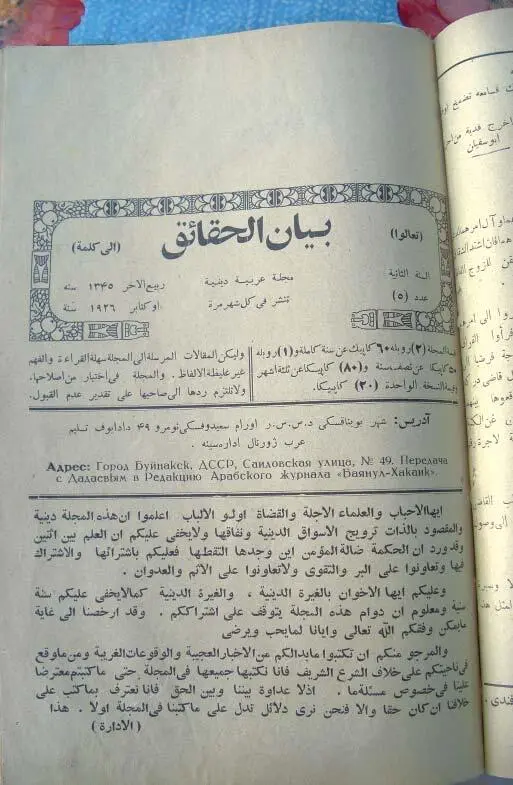 (تعالوا)
بيان الحقائق
(الى كلمة)
السنة الثانية
مجلة عربية دينية
ربيع الاخر ١٣٤٥ سنه
عدد (٥)
تنشر فى كل شهر مرة
اوكتابر ١٩٢٦ سنة
قيمة المجلة (٢) روبله ٦٠ كاپيك عن سنة كاملة و(١) روبله
٥٠ كاپيكا عن نصف سنة و(٨٠) كاپيكا عن ثلاثة اشهر
وقيمة النسخة الواحدة (٣٠) كاپيكا.
وليكن المقالات المرسلة الى المجلة سهلة القراءة والفهم
غير غليظة الالفاظ. والمجلة فى اختيار من اصلاحها،
ولا تلتزم ردها الى صاحبها على تقدير عدم القبول.
آدريس: شهر بويناقسكى د.س.س.ر اورام سعيدوفسكى نومرو ٤٩ دادايوف تسليم
عرب ژورنال اداره سينه.
Адрес: Город Буйнакск, ДССР, Саидовская улица, № 49. Передача
с Дадаевым в Редакцию Арабского журнала «Баянул-Хакаик».
ايها الاحباب والعلماء الاجلة والقضاة اولو الالباب اعلموا ان هذه المجلة دينية
والمقصود بالذات ترويج الاسواق الدينية ونفاقها ولا يخفى عليكم ان العلم بين اثنين
وقد ورد ان الحكمة ضالة المؤمن اين وجدها التقطها فعليكم باشترائها والاشتراك
فيها وتعاونوا على البر والتقوى ولا تعاونوا على الاثم والعدوان.
وعليكم ايها الاخوان بالغيرة الدينية، والغيرة الدينية كما لا يخفى عليكم سنة
سنية ومعلوم ان دوام هذه المجلة يتوقف على اشتراككم. وقد ارخصنا الى غاية
ما يمكن وفقكم الله تعالى وايانا لما يحب ويرضى
والمرجو منكم ان تكتبوا ما بدا لكم من الاخبار العجيبة والوقوعات الغريبة ومن ما وقع
فى ناحيتكم على خلاف الشرع الشريف فانا نكتبها جميعها فى المجلة حتى ما كتبتم معترضا
علينا فى خصوص مسئلة ما. اذ لا عداوة بيننا وبين الحق فانا نعترف بما كتب على
خلافنا ان كان حقا والا فنحن نرى دلائل تدل على ما كتبنا فى المجلة اولا. هذا
(الادارة)